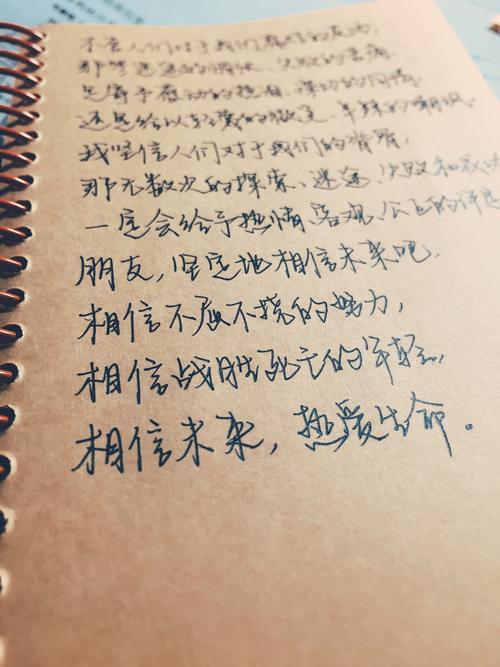 不管人们对于我们腐烂的皮肉,
那些迷途的惆怅、失败的苦痛,
是寄予感动的热泪、深切的同情,
还是给以轻蔑的微笑、辛辣的嘲讽.
我坚信人们对于我们的脊骨,
那无数次的探索、迷途、失败和成功
一定会给予热情、客观、公正的评定
朋友,坚定地相信未来吧.
相信不屈不挠的努力,
相信战胜死亡的年轻,
相信未来,热爱生命。